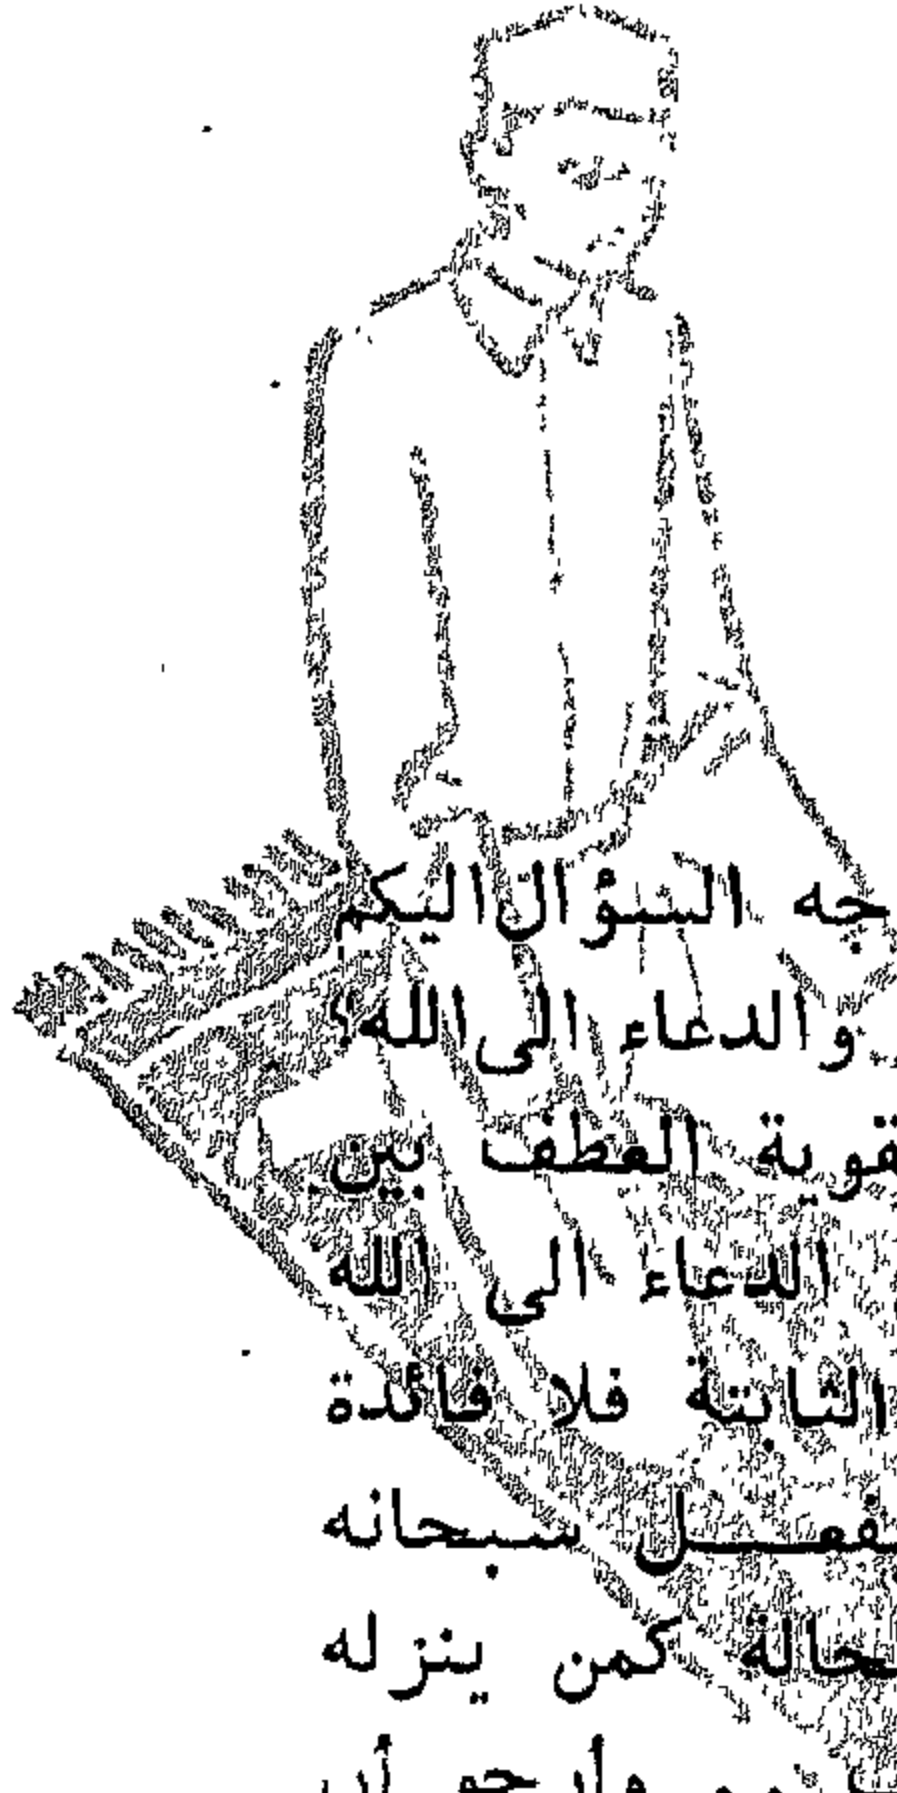 جه السؤال اليكم
والدعاء الى الله؟
قوية العطف بين
الدعاء الى الله
الثابتة فلا فائدة
يفعـــل سبحانه
حالة كمن ينزله
وأرجو أن